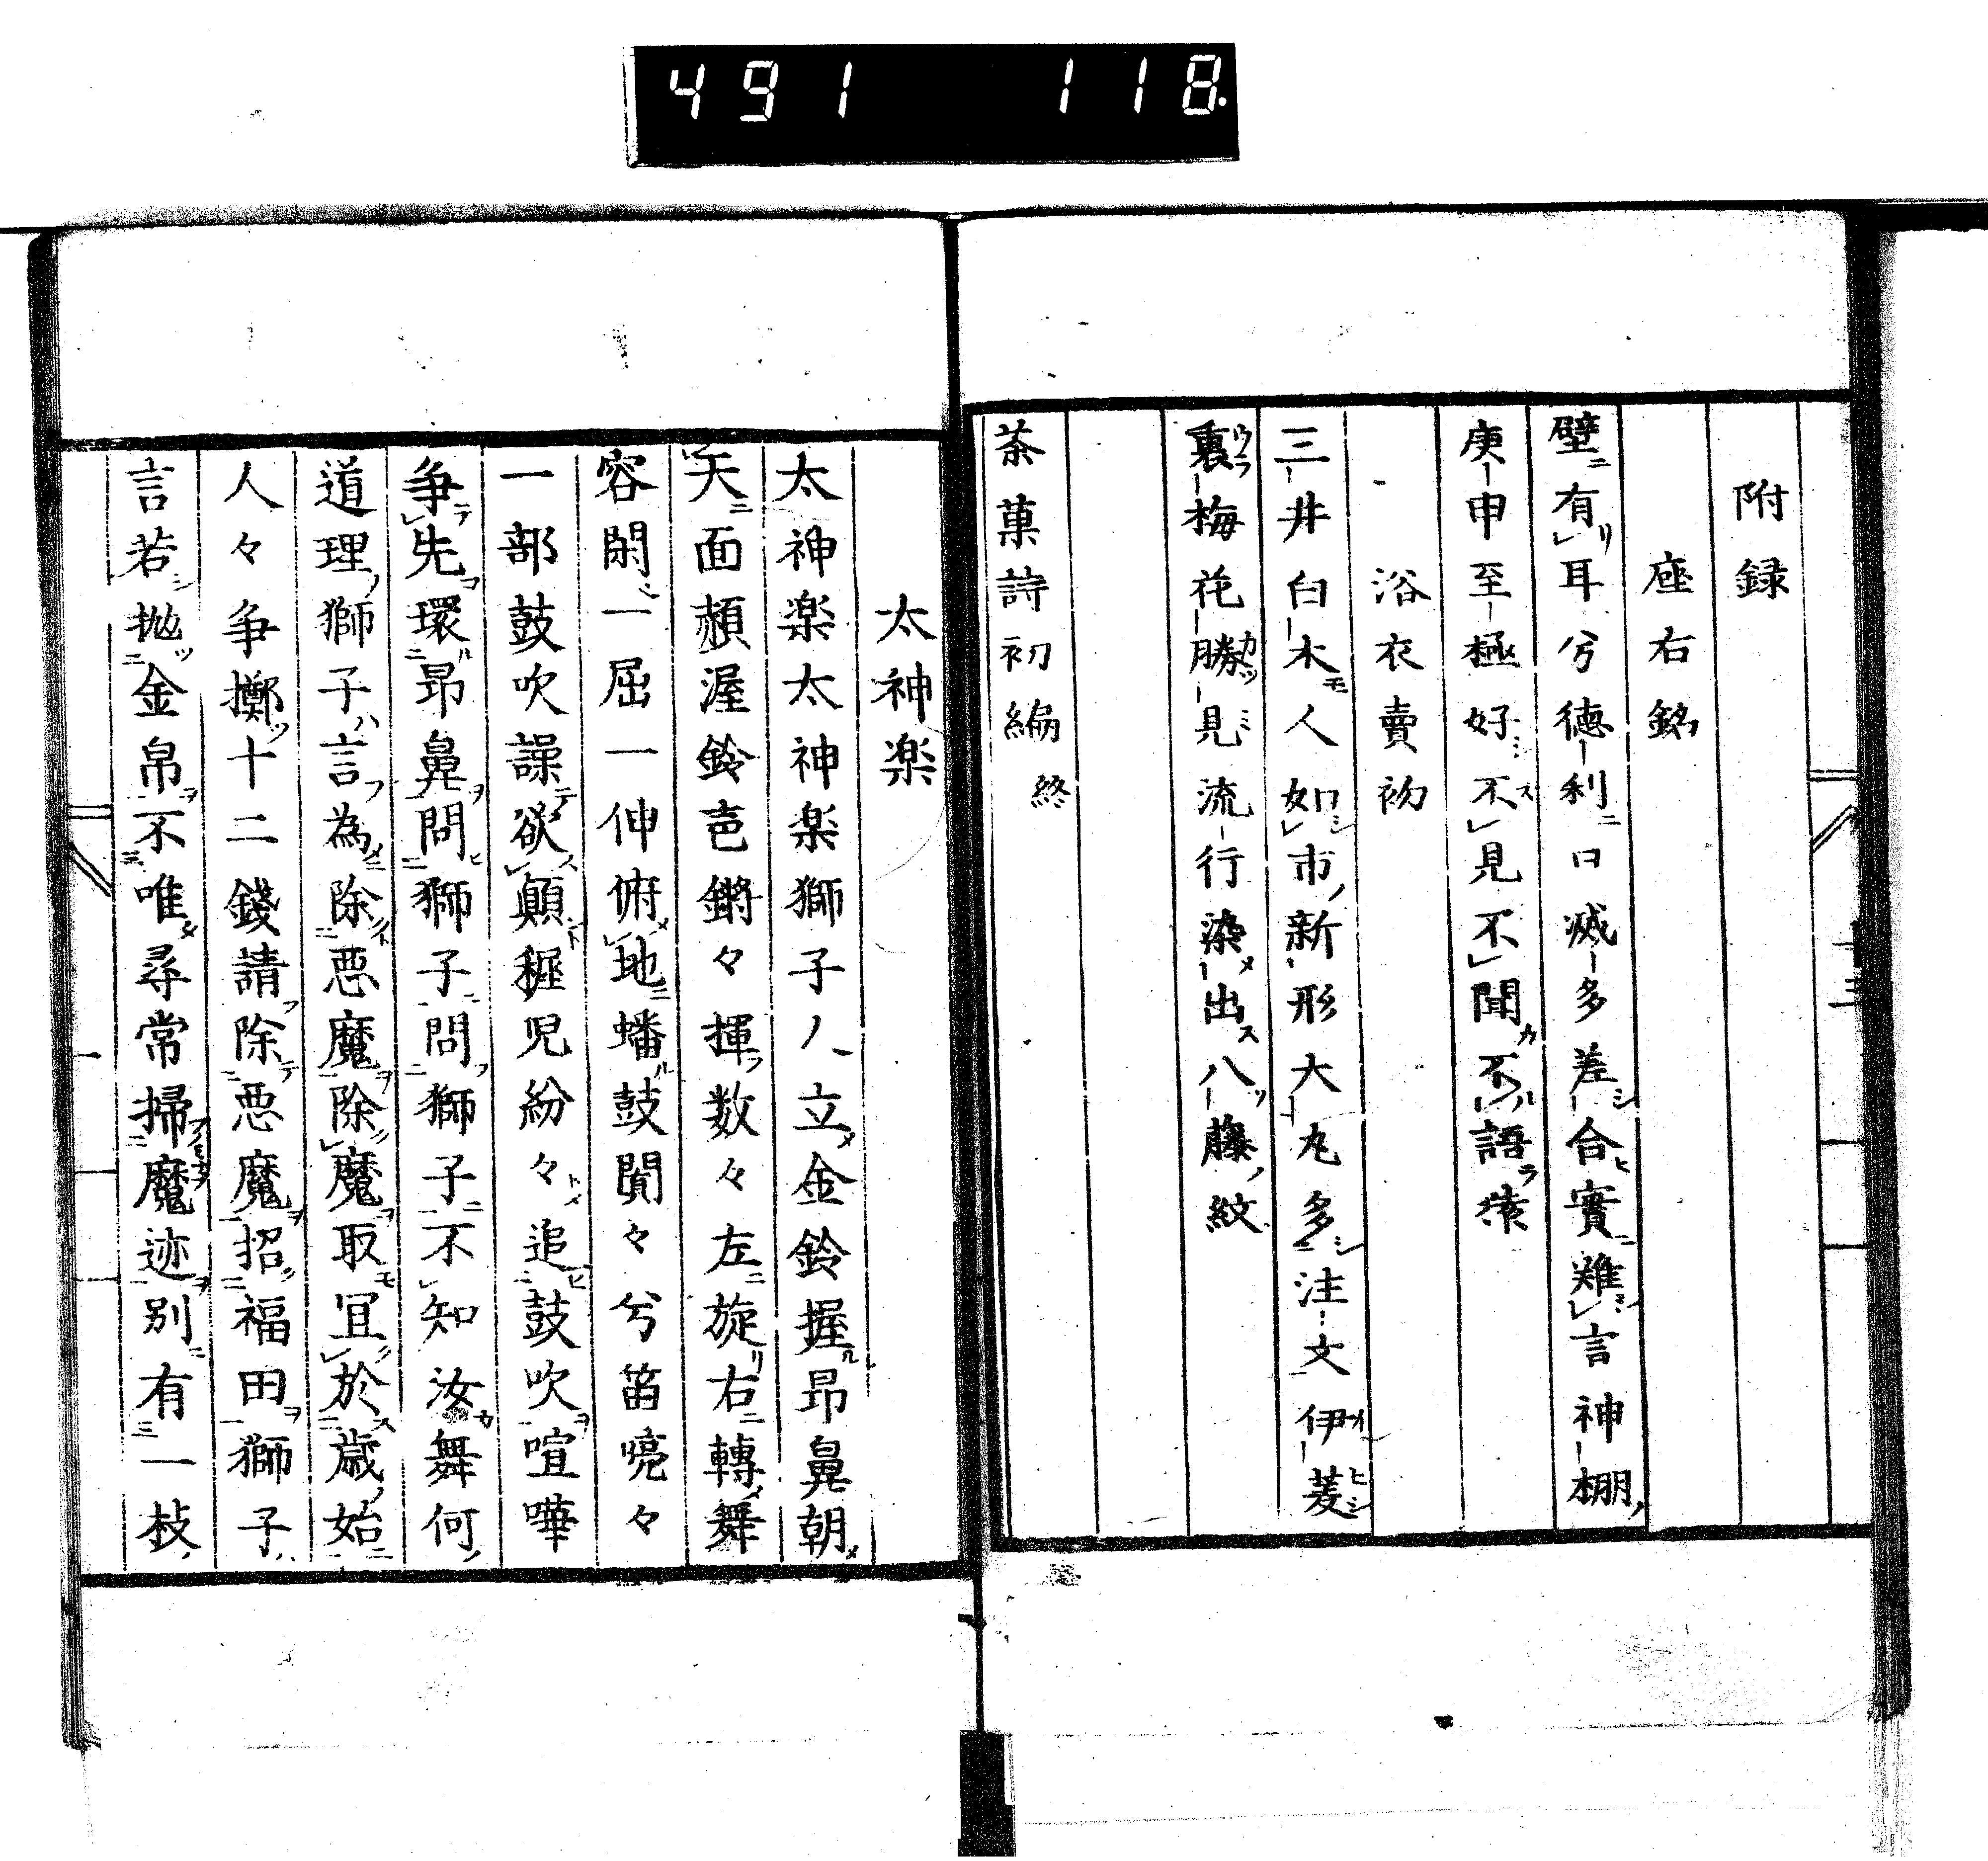 491 118
附録
座右銘
壁有耳兮徳利口滅多差合實難言神棚
庚申至極好不見不聞不語猿
浴衣賣初
三井白木人如市新形大丸多注文伊菱
裏梅花勝見流行染出八藤紋
茶菓詩初編終
太神楽
太神楽太神楽獅子人立金鈴握昂鼻朝
天面頳渥鈴声鏘々揮数々左旋右轉舞
容閑一屈一伸俯地蟠鼓闐々兮笛喨々
一部鼓吹譟欲顛穉児紛々追鼓吹喧嘩
争先環昂鼻問獅子問獅子不知汝舞何
道理獅子言為除悪魔除魔取冝於歳始
人々争擲十二錢請除悪魔招福田獅子
言若抛金帛不唯尋常掃魔迹別有一枝